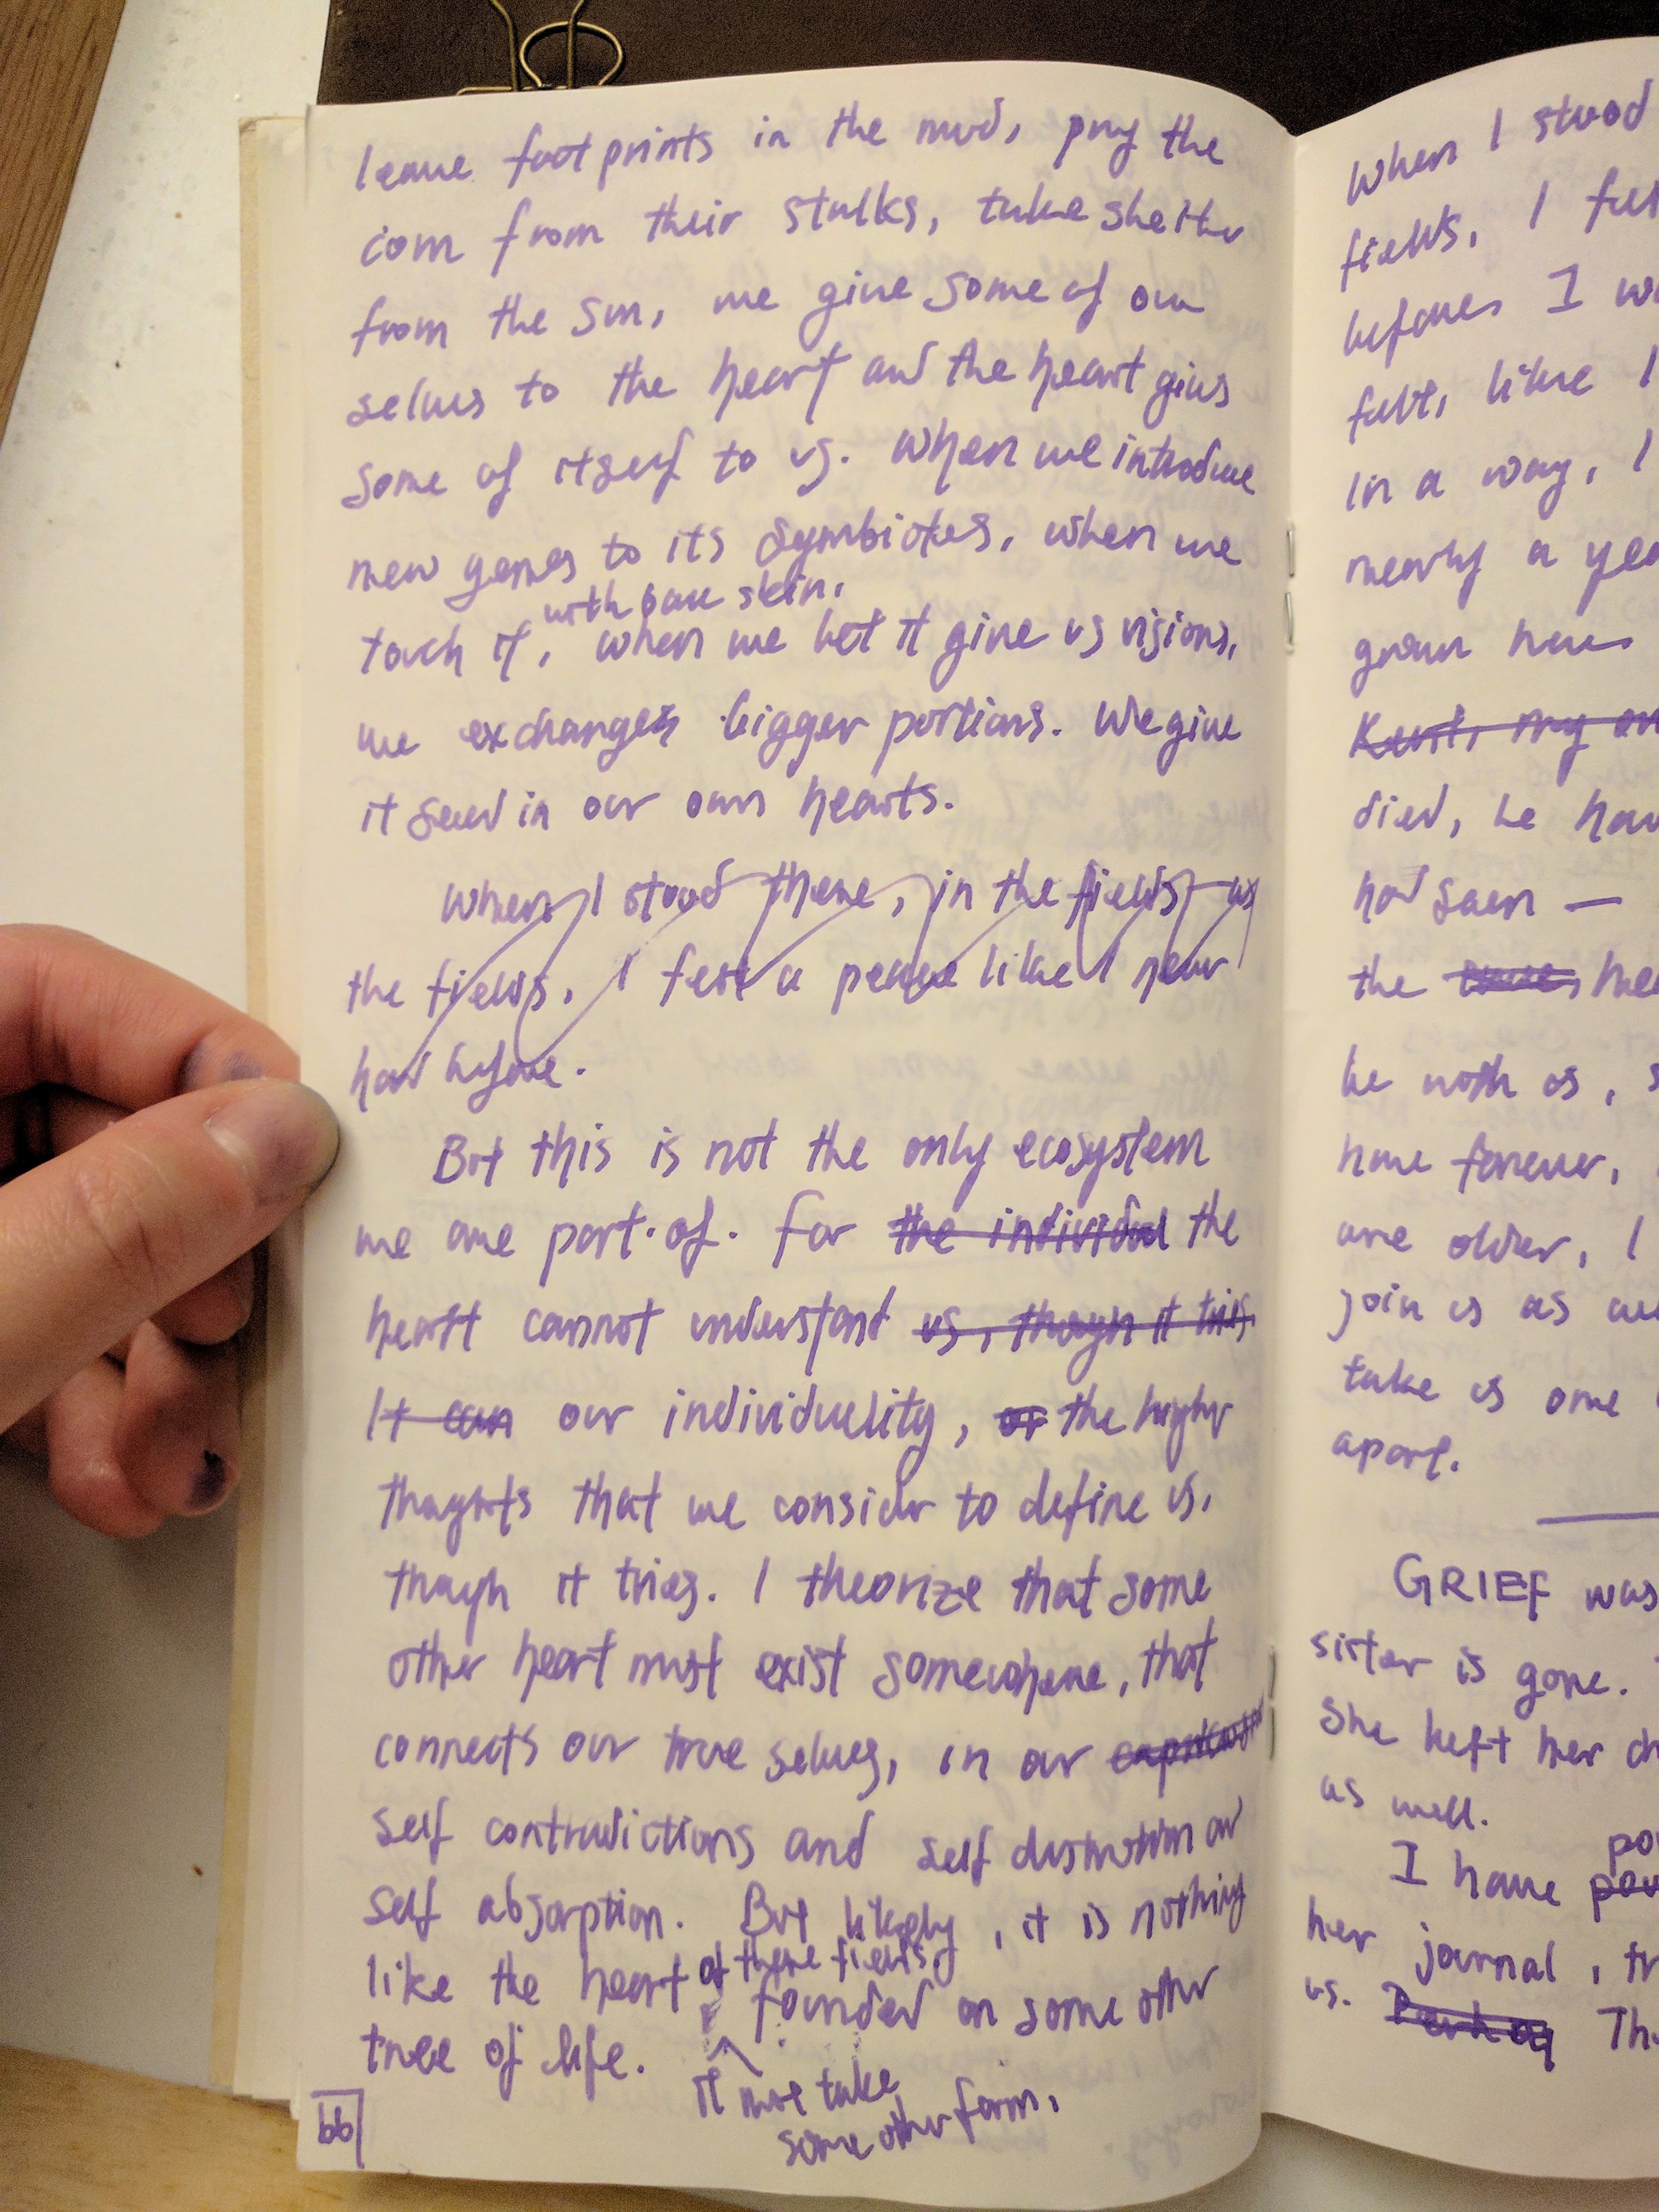 leave footprints in the mud, pry the
corn from their stalks, take shelter
from the sun, we give some of our
selves to the heart and the heart gives
some of itself to us. When we introduce
new genes to its symbiotes, when we
with bare skin,
touch it, when we let it give us visions,
we exchange bigger portions. We give
it seed in our own hearts.
When I stood there, in the fields, as
the fields, I felt a peace like I never
had before.
But this is not the only ecosystem
we are part of. For the individual the
heart cannot understand us, though it tries.
It can our individuality, or the higher
thoughts that we consider to define us,
though it tries. I theorize that some
other heart must exist somewhere, that
connects our true selves, in our
self contradictions and self destruction and
self absorption. But likely, it is nothing
like the heart of these fields,
founded on some other
tree of life.
it must take
some other form.
66
When I stood
fields, I felt
before. I
felt, like I
in a way, I
nearly a year
grown here.
Kent, my
died, he
had seen —
the
be with us,
have forever,
are older, I
join us as
take us one
apart.
GRIEF was
sister is gone.
She left her
as well.
I have
her journal,
us. Th